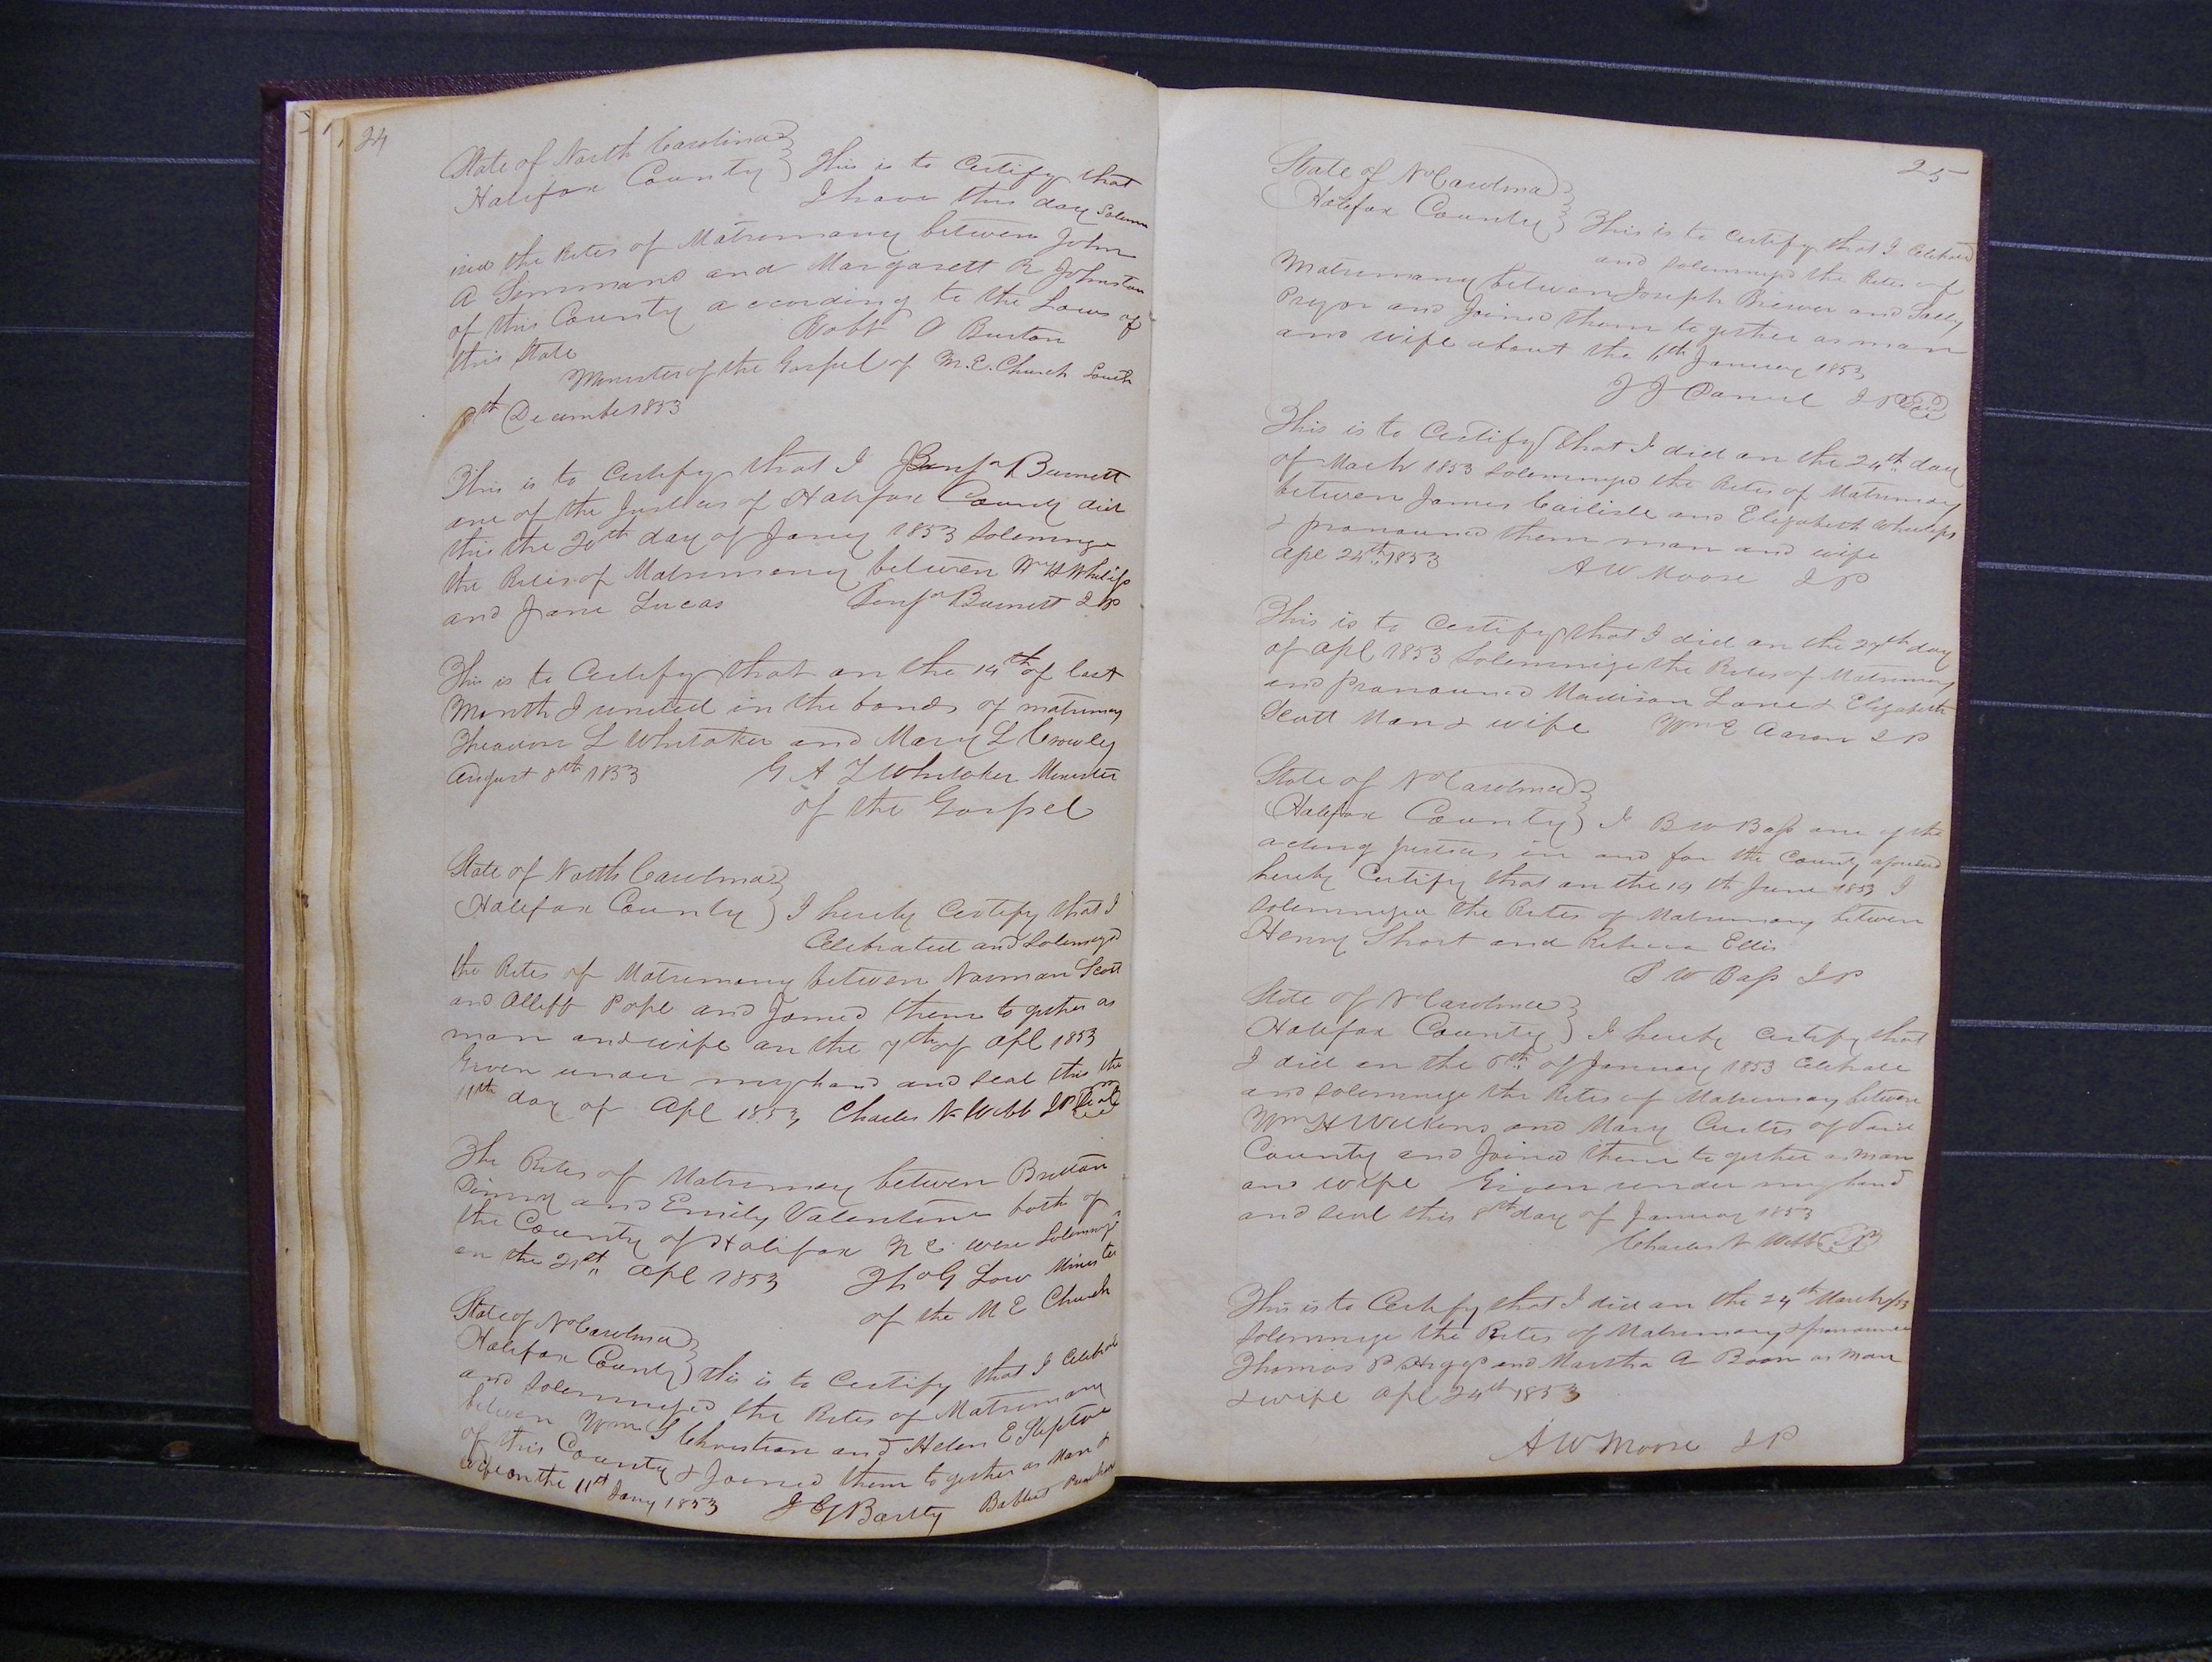 24
State of North Carolina
Halifax County This is to Certify that
I have this day Solemn
ized the Rites of Matrimony between John
A Simmons and Margarett R Johnston
of this County according to the Laws of
this State Robt O Burton
Minister of the Gospel of M.E. Church South
8th December 1853
This is to Certify that I Benja Burnett
one of the Justices of Halifax County did
this the 20th day of Jany 1853 Solemnize
the Rites of Matrimony between Wm H Whilips
and Jane Lucas Benja Burnett JP
This is to Certify that on the 14th of last
Month I united in the bonds of matrimony
Theadore L Whitaker and Mary L Crowley
August 8th 1853 G A T Whitaker Minister
of the Gospel
State of North Carolina
Halifax County I hereby Certify that I
Celebrated and Solemnized
the Rites of Matrimony between Norman Scott
and Pope and Joined them together as
man and wife on the 7th of Apl 1853
Given under my hand and seal this the
11th day of Apl 1853, Charles N Webb JP Seal
The Rites of Matrimony between Britton
and Emily Valentine both of
the County of Halifax N C were Solemnizd
on the 21st Apl 1853 Tho G Low Minister
of the M E Church
State of No Carolina
Halifax County this is to Certify that I Celebrated
and Solemnized the Rites of Matrimony
between Wm S Christian and Helen E Steptoe
of this County & Joined them together as Man &
wife on the 11th Jany 1853 J G Bartly Baptist Preacher
25
State of No Carolina
Halifax County This is to Certify that I Celebrated
and Solemnized the Rites of
Matrimony between Joseph Brewer and Sally
Pryor and Joined them together as man
and wife about the 6th January 1853
J J Daniel JP Seal
This is to Certify that I did on the 24th day
of March 1853 Solemnized the Rites of Matrimony
between James Carlisle and Elizabeth
& pronounced them man and wife
Apl 24th 1853 A W Moore JP
This is to Certify that I did on the 27th day
of Apl 1853 Solemnize the Rites of Matrimony
and pronounced Madison Lane & Elizabeth
Scott Man & wife Wm E Aaron JP
State of No Carolina
Halifax County I B W Bass one of the
acting justices in and for the County aforesaid
hereby Certify that on the 14th June 1853 I
solemnized the Rites of Matrimony between
Henry Short and Rebecca Ellis
B W Bass JP
State of No Carolina
Halifax County I hereby Certify that
I did on the 6th of January 1853 Celebrate
and solemnize the Rites of Matrimony between
Wm H Wilkens and Mary Curtis of Said
County and Joined them together as man
and wife Given under my hand
and seal this 8th day of January 1853
Charles N Webb JP
This is to Certify that I did on the 24th March /53
Solemnize the Rites of Matrimony & pronounce
Thomas P and Martha A Boon as Man
& wife Apl 24th 1853
A W Moore JP